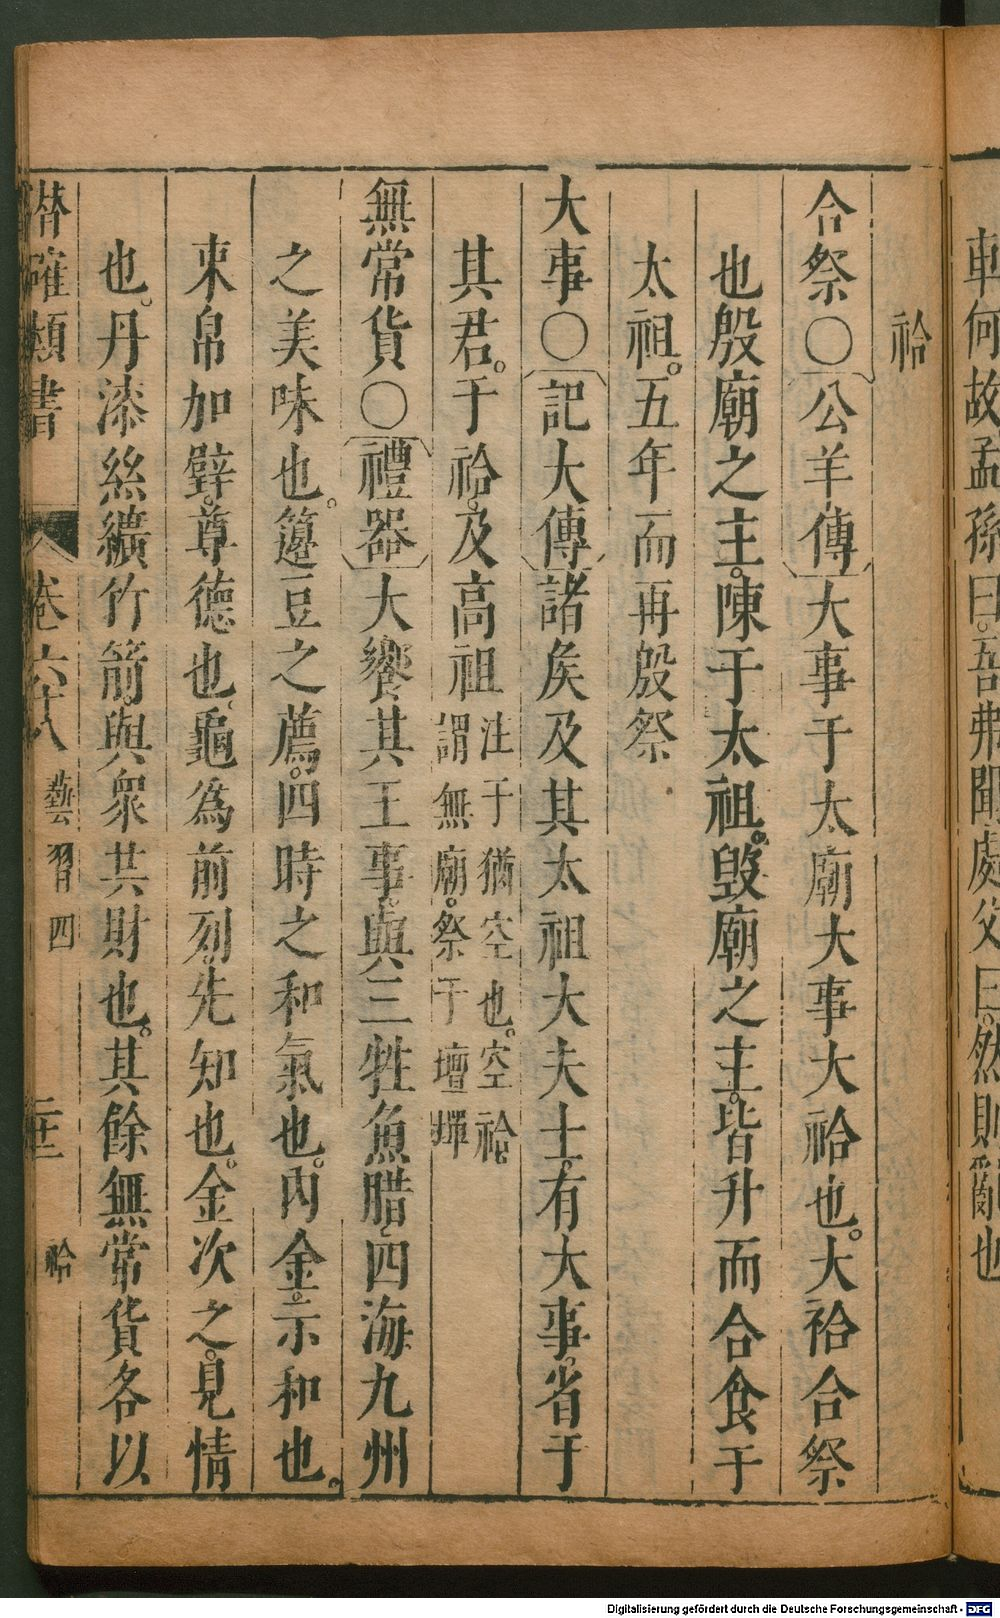 斬何故孟孫曰吾弗聞處父曰然則亂也
祫
合祭○公羊傳大事于太廟大事大祫也。大祫合祭
也殷廟之主。陳于太祖。毀廟之主。皆升而合食于
太祖。五年而再殷祭
大事○記大傳諸矦及其太祖大夫士。有大事。省于
其君。于祫。及高祖
注于猶空也。空祫
謂無廟。祭于壇墠
無常貨○禮器大饗其王事。與三牲魚腊。四海九州
之美味也。籩豆之薦。四時之和氣也。內金。示和也。
束帛加璧。尊德也。龜為前列。先知也。金次之。見情
也。丹漆絲纊竹箭。與眾共財也。其餘無常貨各以
潛確類書 卷六十八 藝習四 二十二 祫
Digitalisierung gefördert durch die Deutsche Forschungsgemeinschaft - DFG